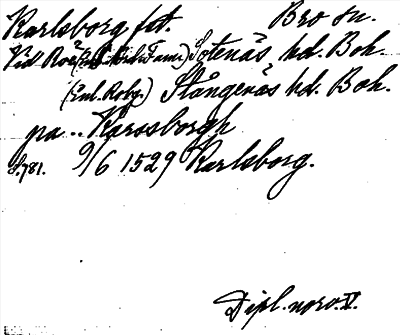 Karlsborg fst. Bro sn.
Vid Roe Sotenäs hd. Boh.
(Enl. Robg.) Stångenäs hd. Boh.
pa .. Karssborgh
S. 781. 9/6 1529 Karlsborg.
Dipl. norv. V.